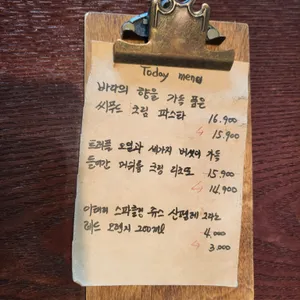 Today menu
바다의 향을 가득 품은
씨푸드 크림 파스타
16.900
↳ 15.900
트러플 오일과 세가지 버섯이 가득
들어간 머쉬룸 크림 리조또 15.900
↳ 14.900
이태리 스파클링 쥬스 산펠레그리노
레드 오렌지 200ml 4.000
↳ 3.000